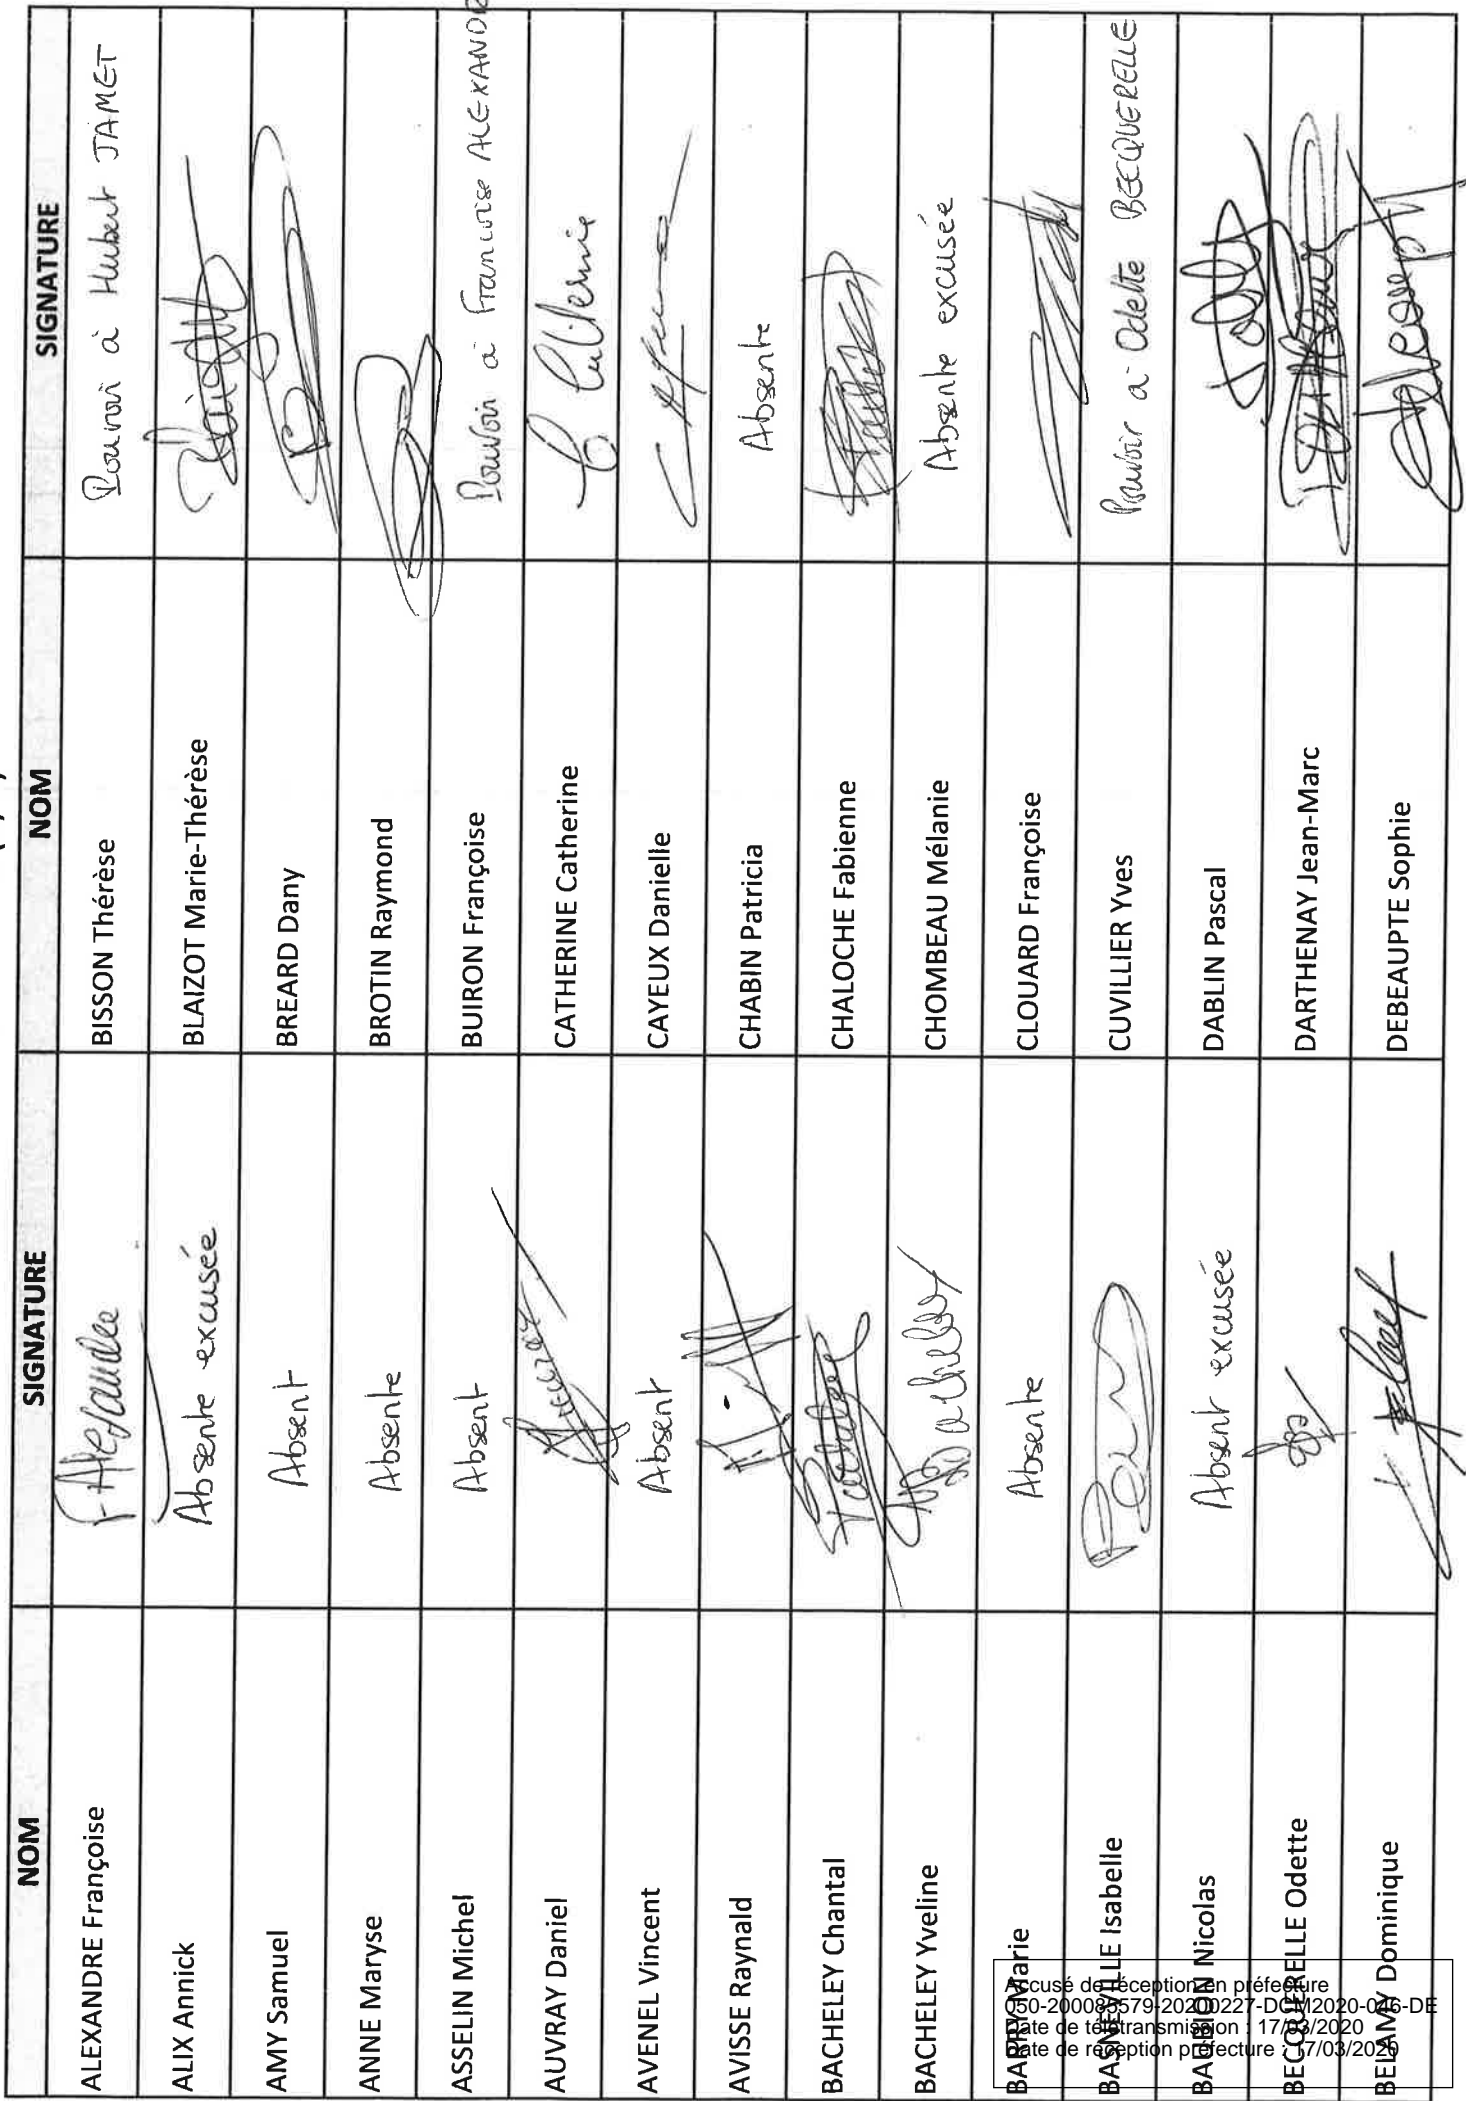 NOM SIGNATURE NOM SIGNATURE
ALEXANDRE Françoise F Alexandre BISSON Thérèse Pouvoir à Hubert JAMET
ALIX Annick Absente excusée BLAIZOT Marie-Thérèse
AMY Samuel Absent BREARD Dany
ANNE Maryse Absente BROTIN Raymond
ASSELIN Michel Absent BUIRON Françoise Pouvoir à Françoise ALEXANDRE
AUVRAY Daniel CATHERINE Catherine
AVENEL Vincent Absent CAYEUX Danielle
AVISSE Raynald CHABIN Patricia Absente
BACHELEY Chantal CHALOCHE Fabienne
BACHELEY Yveline CHOMBEAU Mélanie Absente excusée
BARRY Marie Absente CLOUARD Françoise
BASNEVILLE Isabelle CUVILLIER Yves Pouvoir à Odette BECQUERELLE
BAUBION Nicolas Absent excusée DABLIN Pascal
BECQUERELLE Odette DARTHENAY Jean-Marc
BELAMY Dominique DEBEAUPTE Sophie
Accusé de réception en préfecture
050-200085579-20200227-DCM2020-046-DE
Date de télétransmission : 17/03/2020
Date de réception préfecture : 17/03/2020